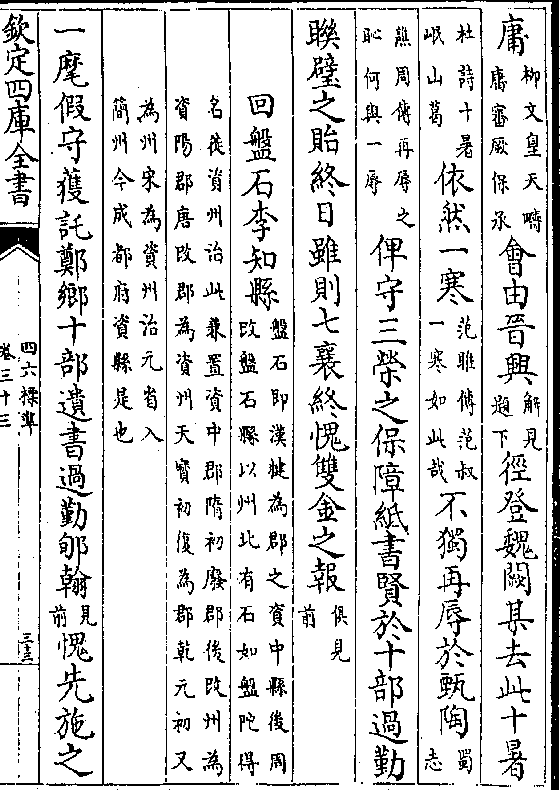 庸柳文皇天疇庸審厥保承會由晉興解見題下徑登魏闕某去此十暑
杜詩十暑岷山葛依然一寒范睢傳范叔一寒如此哉不獨再辱於甄陶蜀志
譙周傳再辱之恥何與一辱俾守三榮之保障紙書賢於十部過勤
聨璧之貽終日雖則七襄終愧雙金之報俱見前
回盤石李知縣盤石即漢犍為郡之資中縣後周改盤石縣以州北有石如盤陀得
名徙資州治此兼置資中郡隋初廢郡後改州為資陽郡唐改郡為資州天寶初復為郡乾元初又
為州宋為資州治元省入簡州今成都府資縣是也
一麾假守獲託鄭鄉十部遺書過勤郇翰見前愧先施之
欽定四庫全書
四六標準
卷三十三
三三